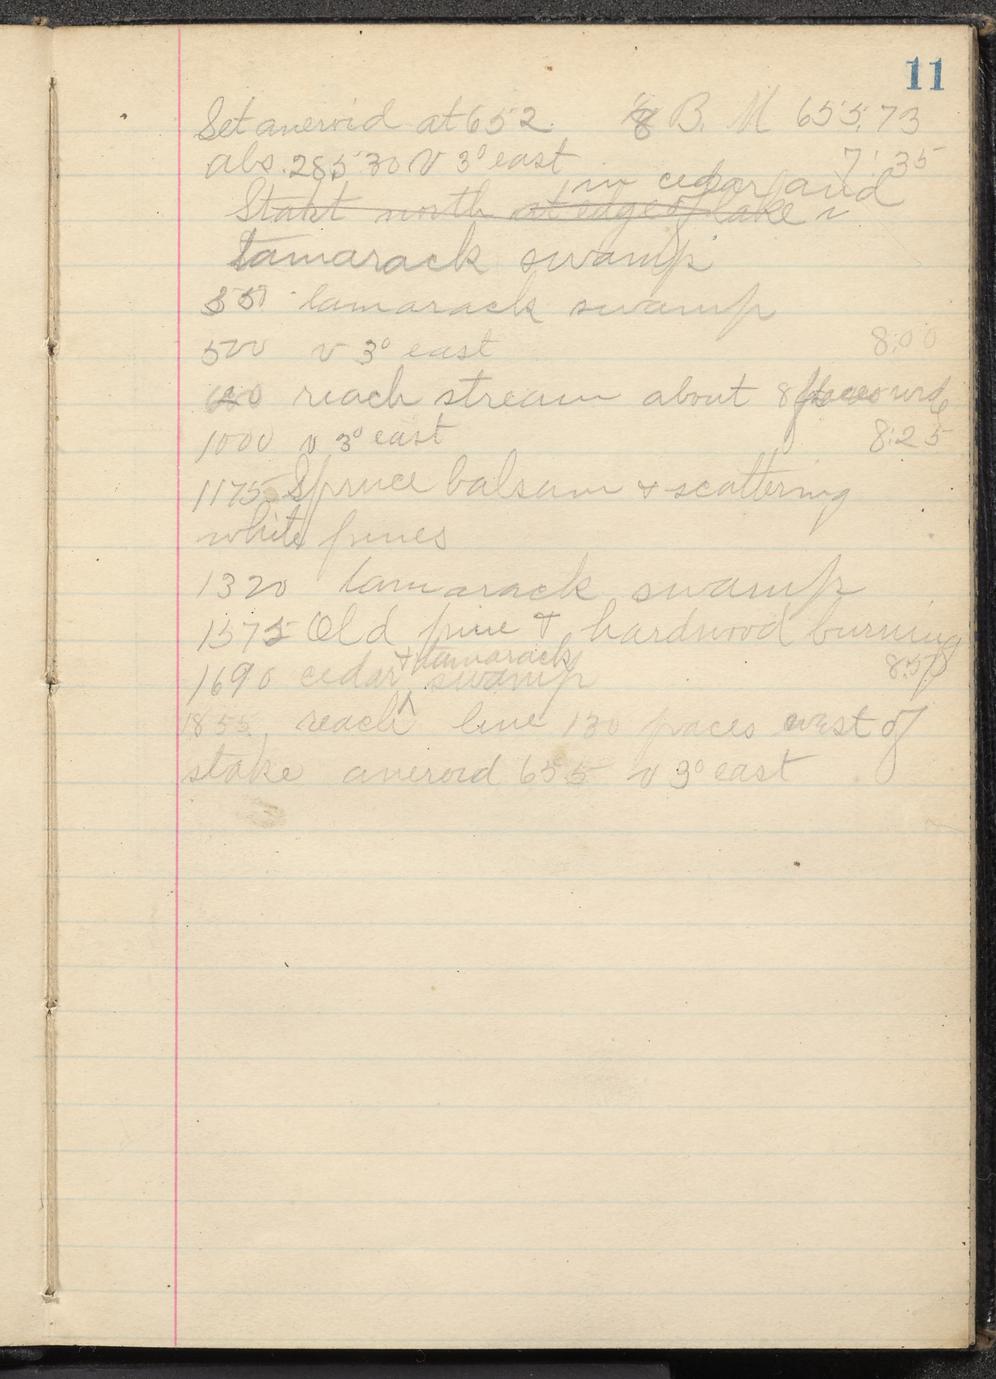 11
Set aneroid at 652 B. M 655.73
abs. 28,5 30 V 3° east 7:35
in cedar and
Start north at edge of lake
tamarack swamp
550 tamarack swamp
500 v 3° east 8:00
reach stream about 8 paces wide
1000 v 3° east 8:25
1175 Spruce balsam & scattering
white pines
1320 tamarack swamp
1575 Old pine & hardwood burning
& tamarack
1690 cedar ^ swamp 8:50
1855, reach line 130 paces west of
stake aneroid 655 v 3° east